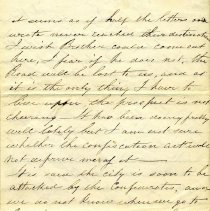 it seems as if half the letters we
wrote never reached their destination
I wish Brother could come out
here, I fear if he does not, the
Road will be lost to us, and as
it is the only thing I have to
live upon the prospect is not
cheering. It has been doing pretty
well lately but I am not sure
whether the confiscation act will
not deprive me of it
It is said the city is soon to be
attacked by the Confederates, and
we do not know where to go to